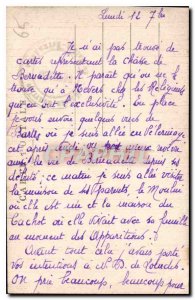 Lundi 12 7bre
Je n'ai pas trouvé de
cartes représentant la Châsse de
Bernadette. Il paraît qu'on ne le
trouve qu'à Nevers chez les Religieuses
qui en ont l'exclusivité. En place
je vous envoie quelques vues de
Bartrès où je suis allée en Pèlerinage
cet après midi
la vie de Bernadette depuis ses
débuts ce matin je suis allée visiter
la maison de ses Parents le Moulin
où elle est née et la maison du
Cachot où elle était avec sa famille
au moment des Apparitions.
Avant tout cela j'avais porté
vos intentions à N. D. de Lourdes.
On prie beaucoup, beaucoup pour